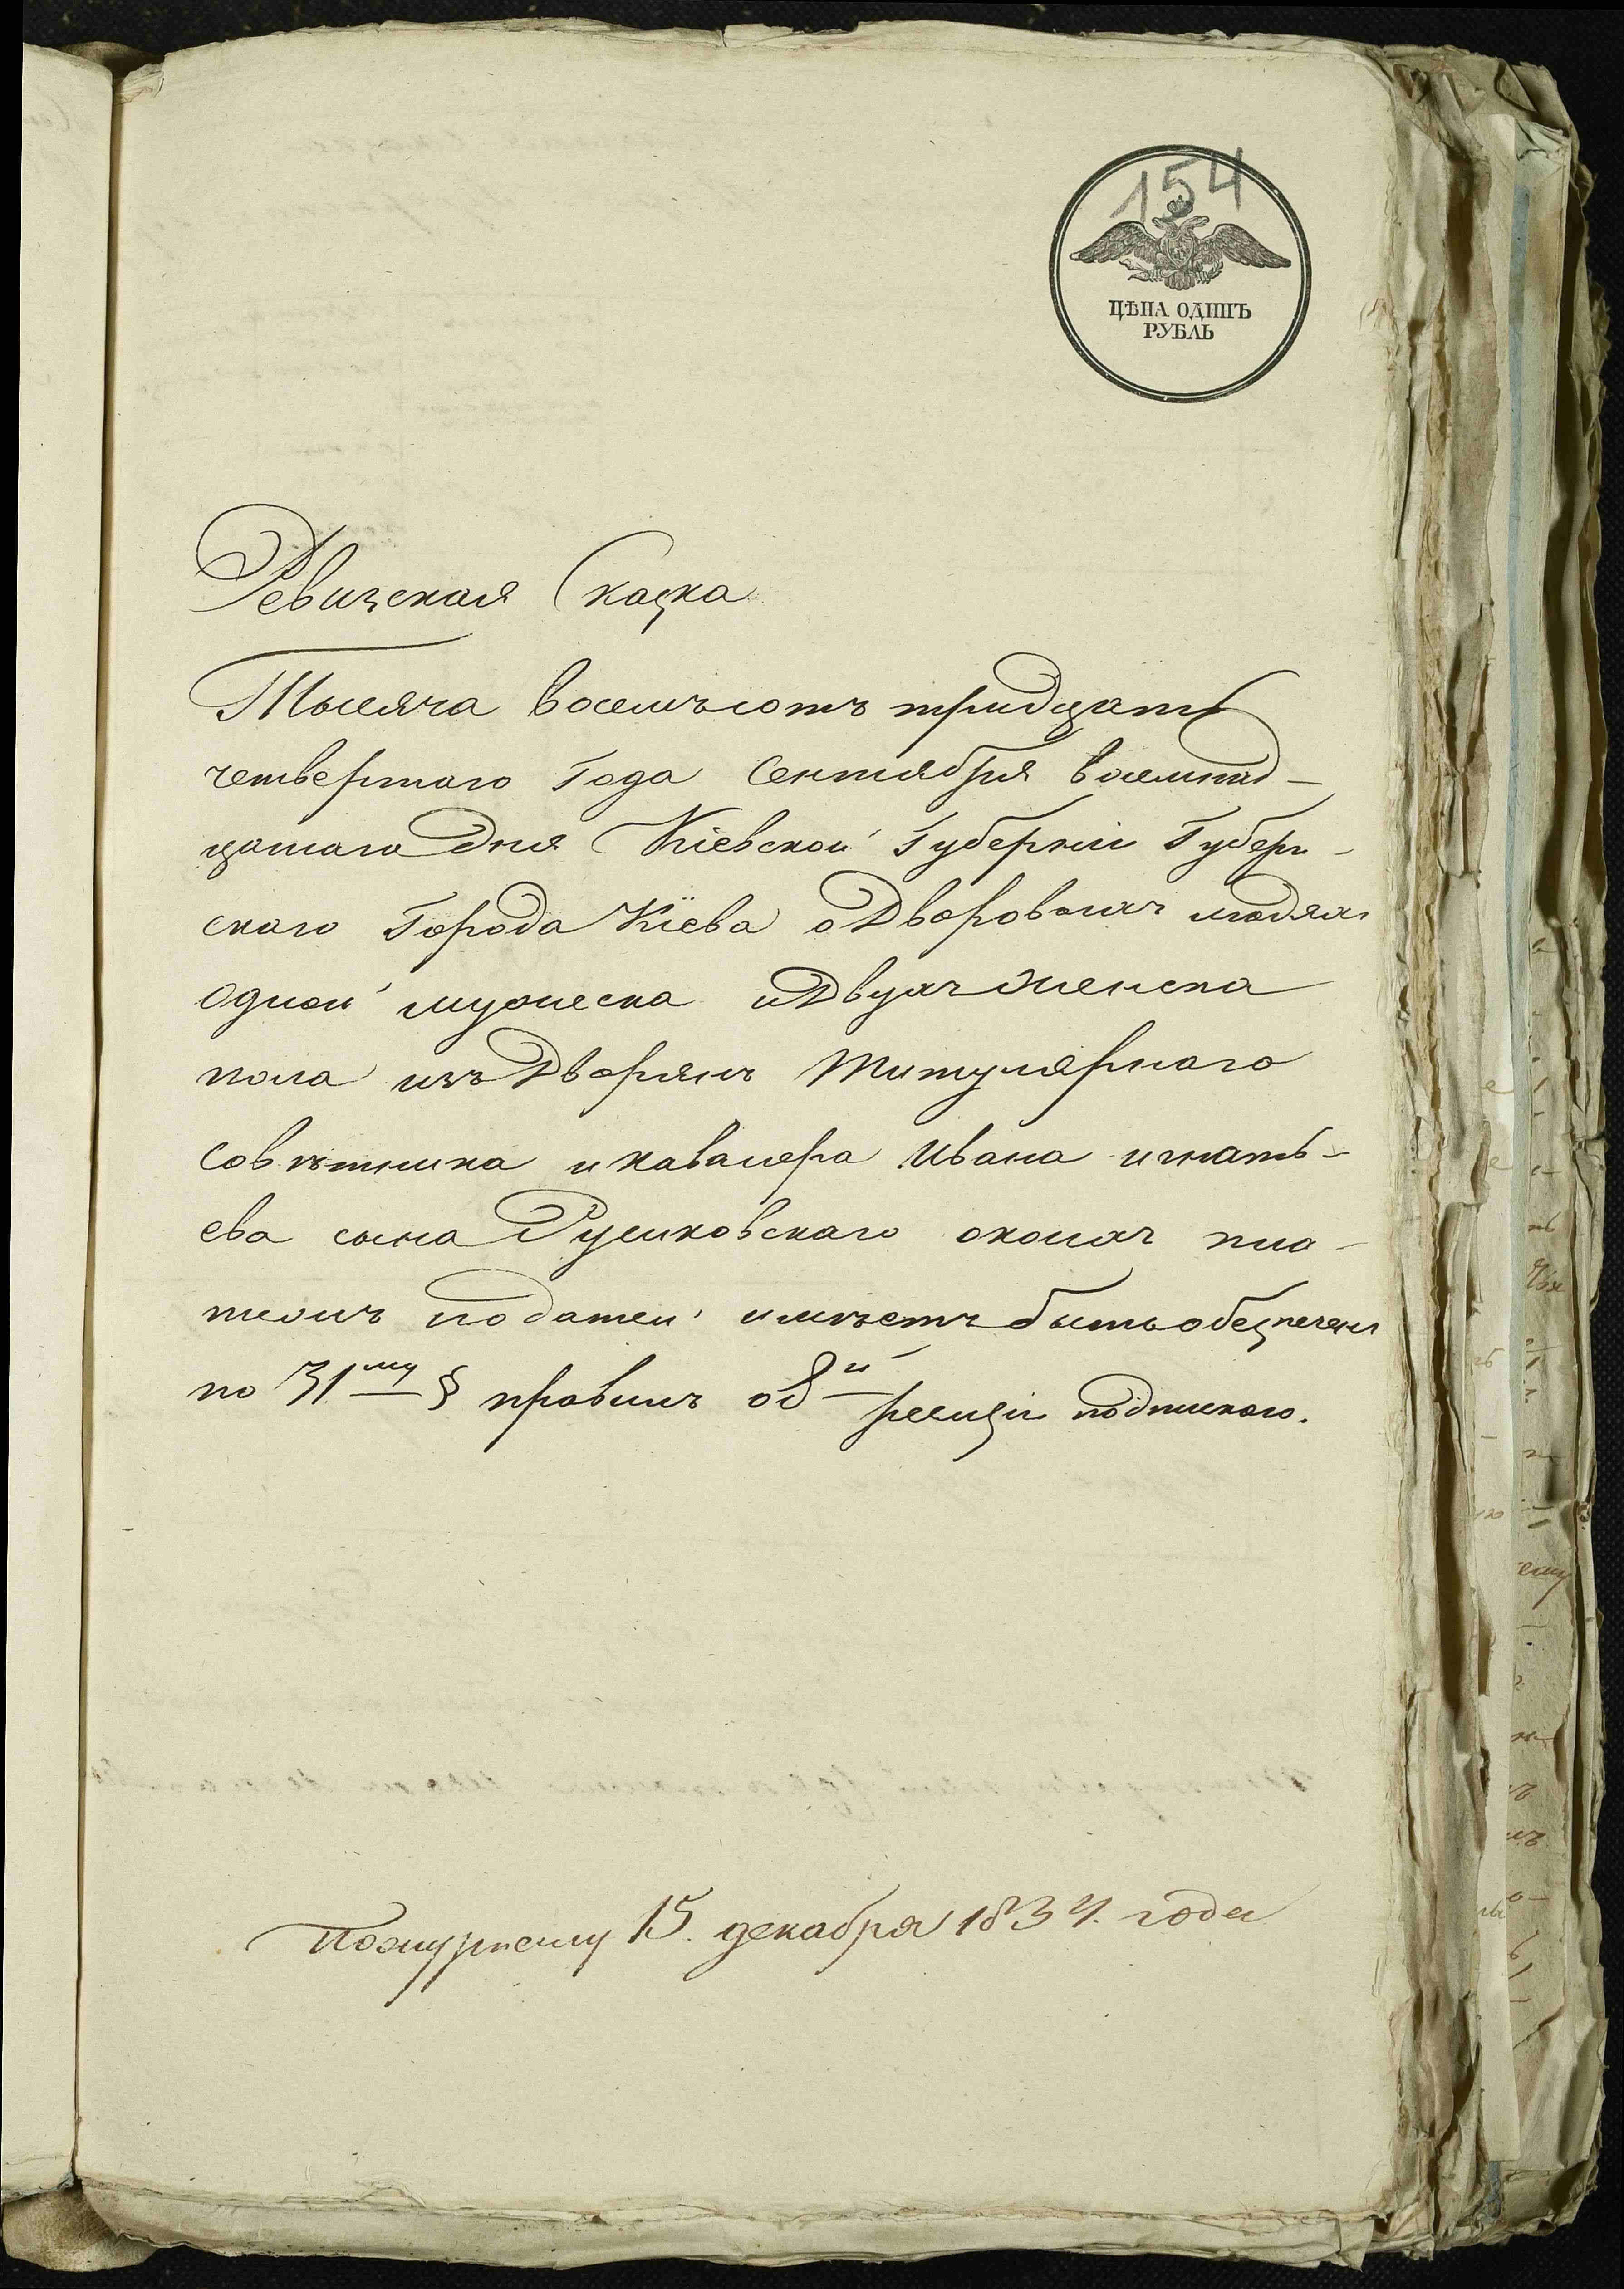 154
ЦѢНА ОДИНЪ
РУБЛЬ
Ревизская Сказка
Тысяча восемьсотъ тридцать
четвертаго Года Сентября восемнад-
цатаго Дня Кіевской Губерніи Губерн-
скаго Города Кіева о Дворовыхъ людяхъ
одной мужеска и Двухъ Женска
пола изъ Дворянъ Титулярнаго
совѣтника и кавалера Ивана игнать-
ева сына Румковскаго о коихъ пла-
тежъ податей имѣетъ быть обезпеченъ
по 31му § правилъ о 8й ревизіи подпискою.
15. декабря 1834. года